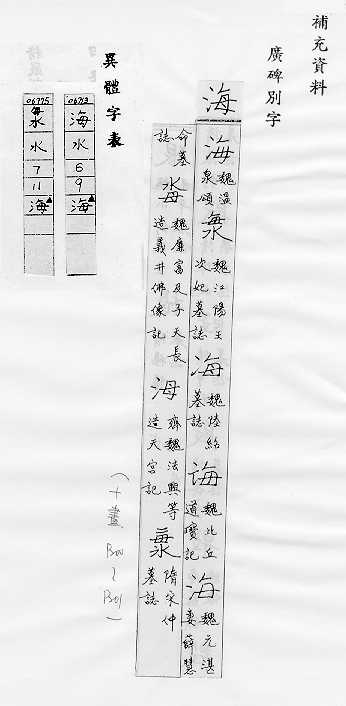 補充資料
廣碑別字
海
海
魏溫
泉頌
魏江陽王
次妃墓誌
海
魏陸紹
墓誌
海
魏比丘
道寶記
海
魏元湛
妻薛慧
命墓
誌
魏廉富及子天長
造義井佛像記
海
齊魏法興等
造天宮記
隋宋仲
墓誌
異體字表
06713
海
水
6
9
海
06775
水
7
11
海
(十畫